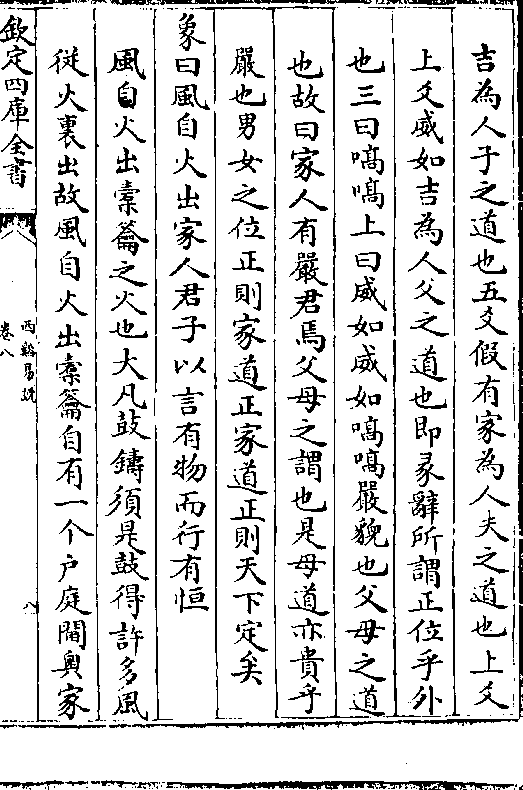 吉為人子之道也五爻假有家為人夫之道也上爻
上爻威如吉為人父之道也即彖辭所謂正位乎外
也三曰嗃嗃上曰威如威如嗃嗃嚴貌也父母之道
也故曰家人有嚴君焉父母之謂也是母道亦貴乎
嚴也男女之位正則家道正家道正則天下定矣
象曰風自火出家人君子以言有物而行有恒
風自火出橐籥之火也大凡鼓鑄須是鼓得許多風
從火裏出故風自火出橐籥自有一个户庭閫奥家
欽定四庫全書
西谿易說
卷八
八